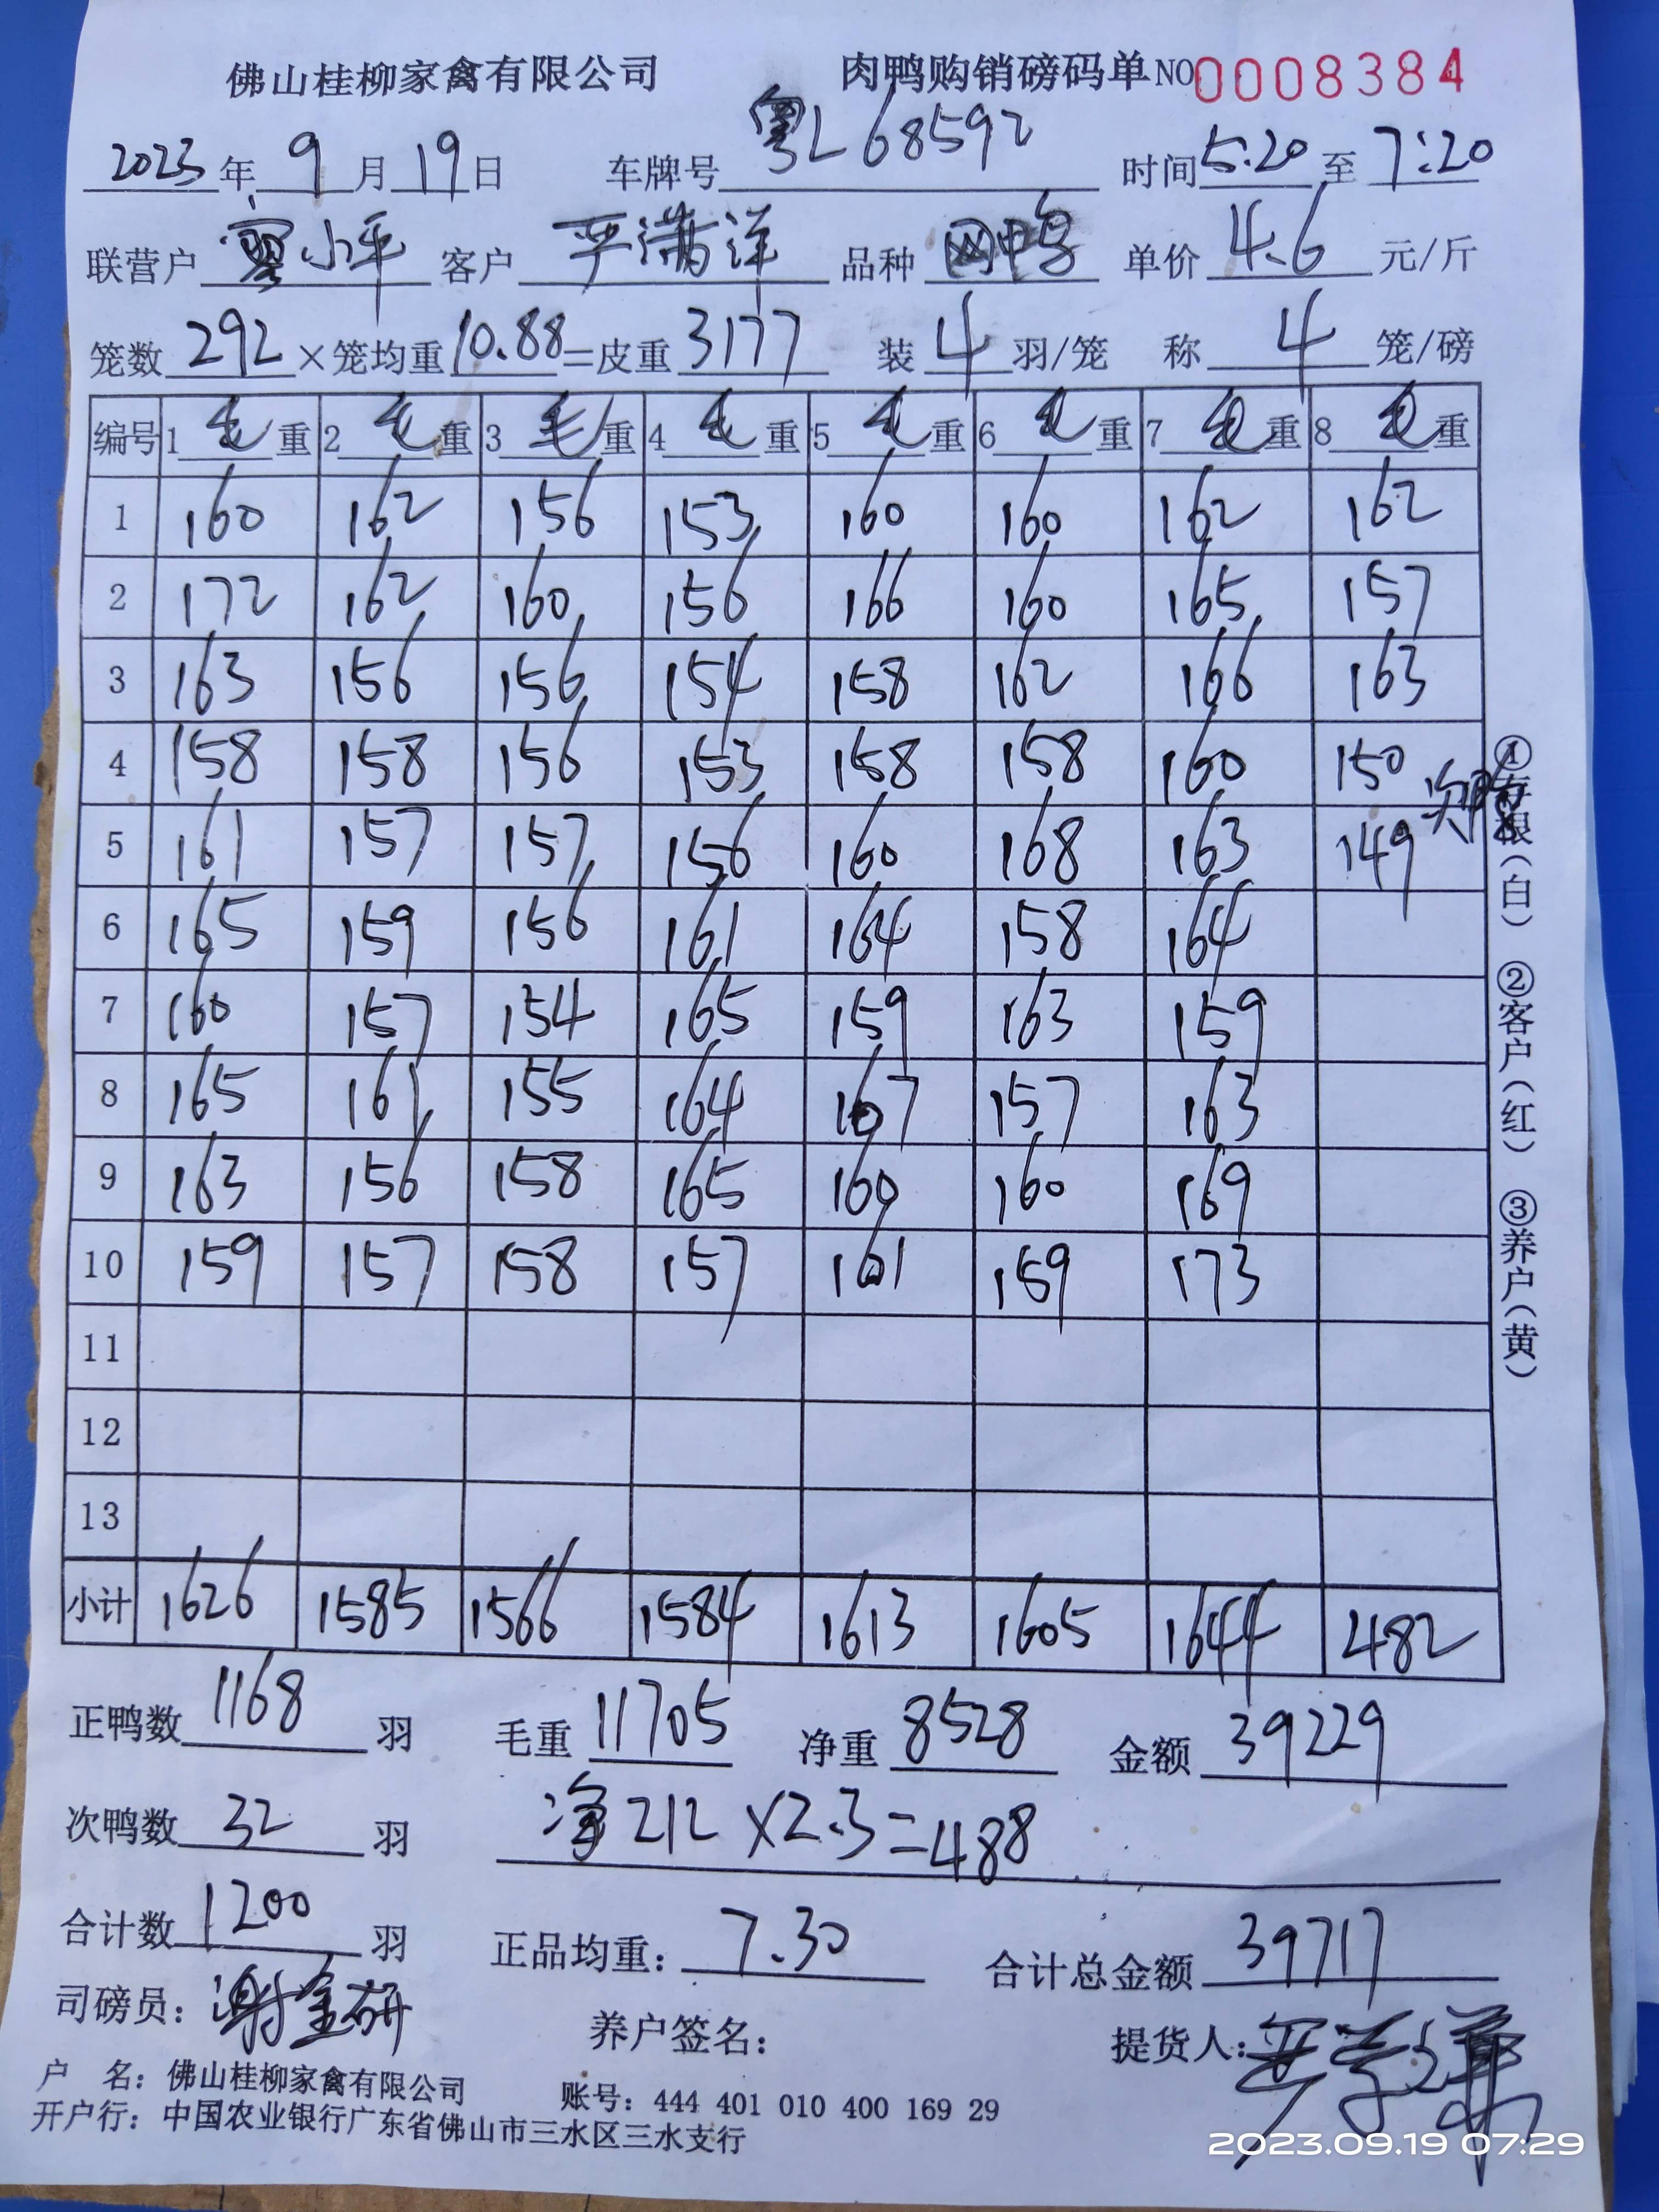 佛山桂柳家禽有限公司 肉鸭购销磅码单 NO 0008384
2023年 9月 19日 车牌号 粤L68592 时间 5:20 至 7:20
联营户 廖小平 客户 严满洋 品种 单价 4.6 元/斤
笼数 292 ×笼均重 10.88 =皮重 3177 装 4 羽/笼 称 4 笼/磅
编号 1 毛重 2 毛重 3 毛重 4 毛重 5 毛重 6 毛重 7 毛重 8 毛重
1 160 162 156 153 160 160 162 162
2 172 162 160 156 166 160 165 157
3 163 156 156 154 158 162 166 163
4 158 158 156 153 158 158 160 150
次鸭
5 161 157 157 156 160 168 163 149
6 165 159 156 161 164 158 164
7 160 157 154 165 159 163 159
8 165 161 155 164 167 157 163
9 163 156 158 165 160 160 169
10 159 157 158 157 161 159 173
11
12
13
小计 1626 1585 1566 1584 1613 1605 1644 482
①存根(白) ②客户(红) ③养户(黄)
正鸭数 1168 羽 毛重 11705 净重 8528 金额 39229
次鸭数 32 羽 净212×2.3=488
合计数 1200 羽 正品均重: 7.30 合计总金额 39717
司磅员: 谢金研 养户签名: 提货人:
户 名: 佛山桂柳家禽有限公司 账号: 444 401 010 400 169 29
开户行: 中国农业银行广东省佛山市三水区三水支行
2023.09.19 07:29